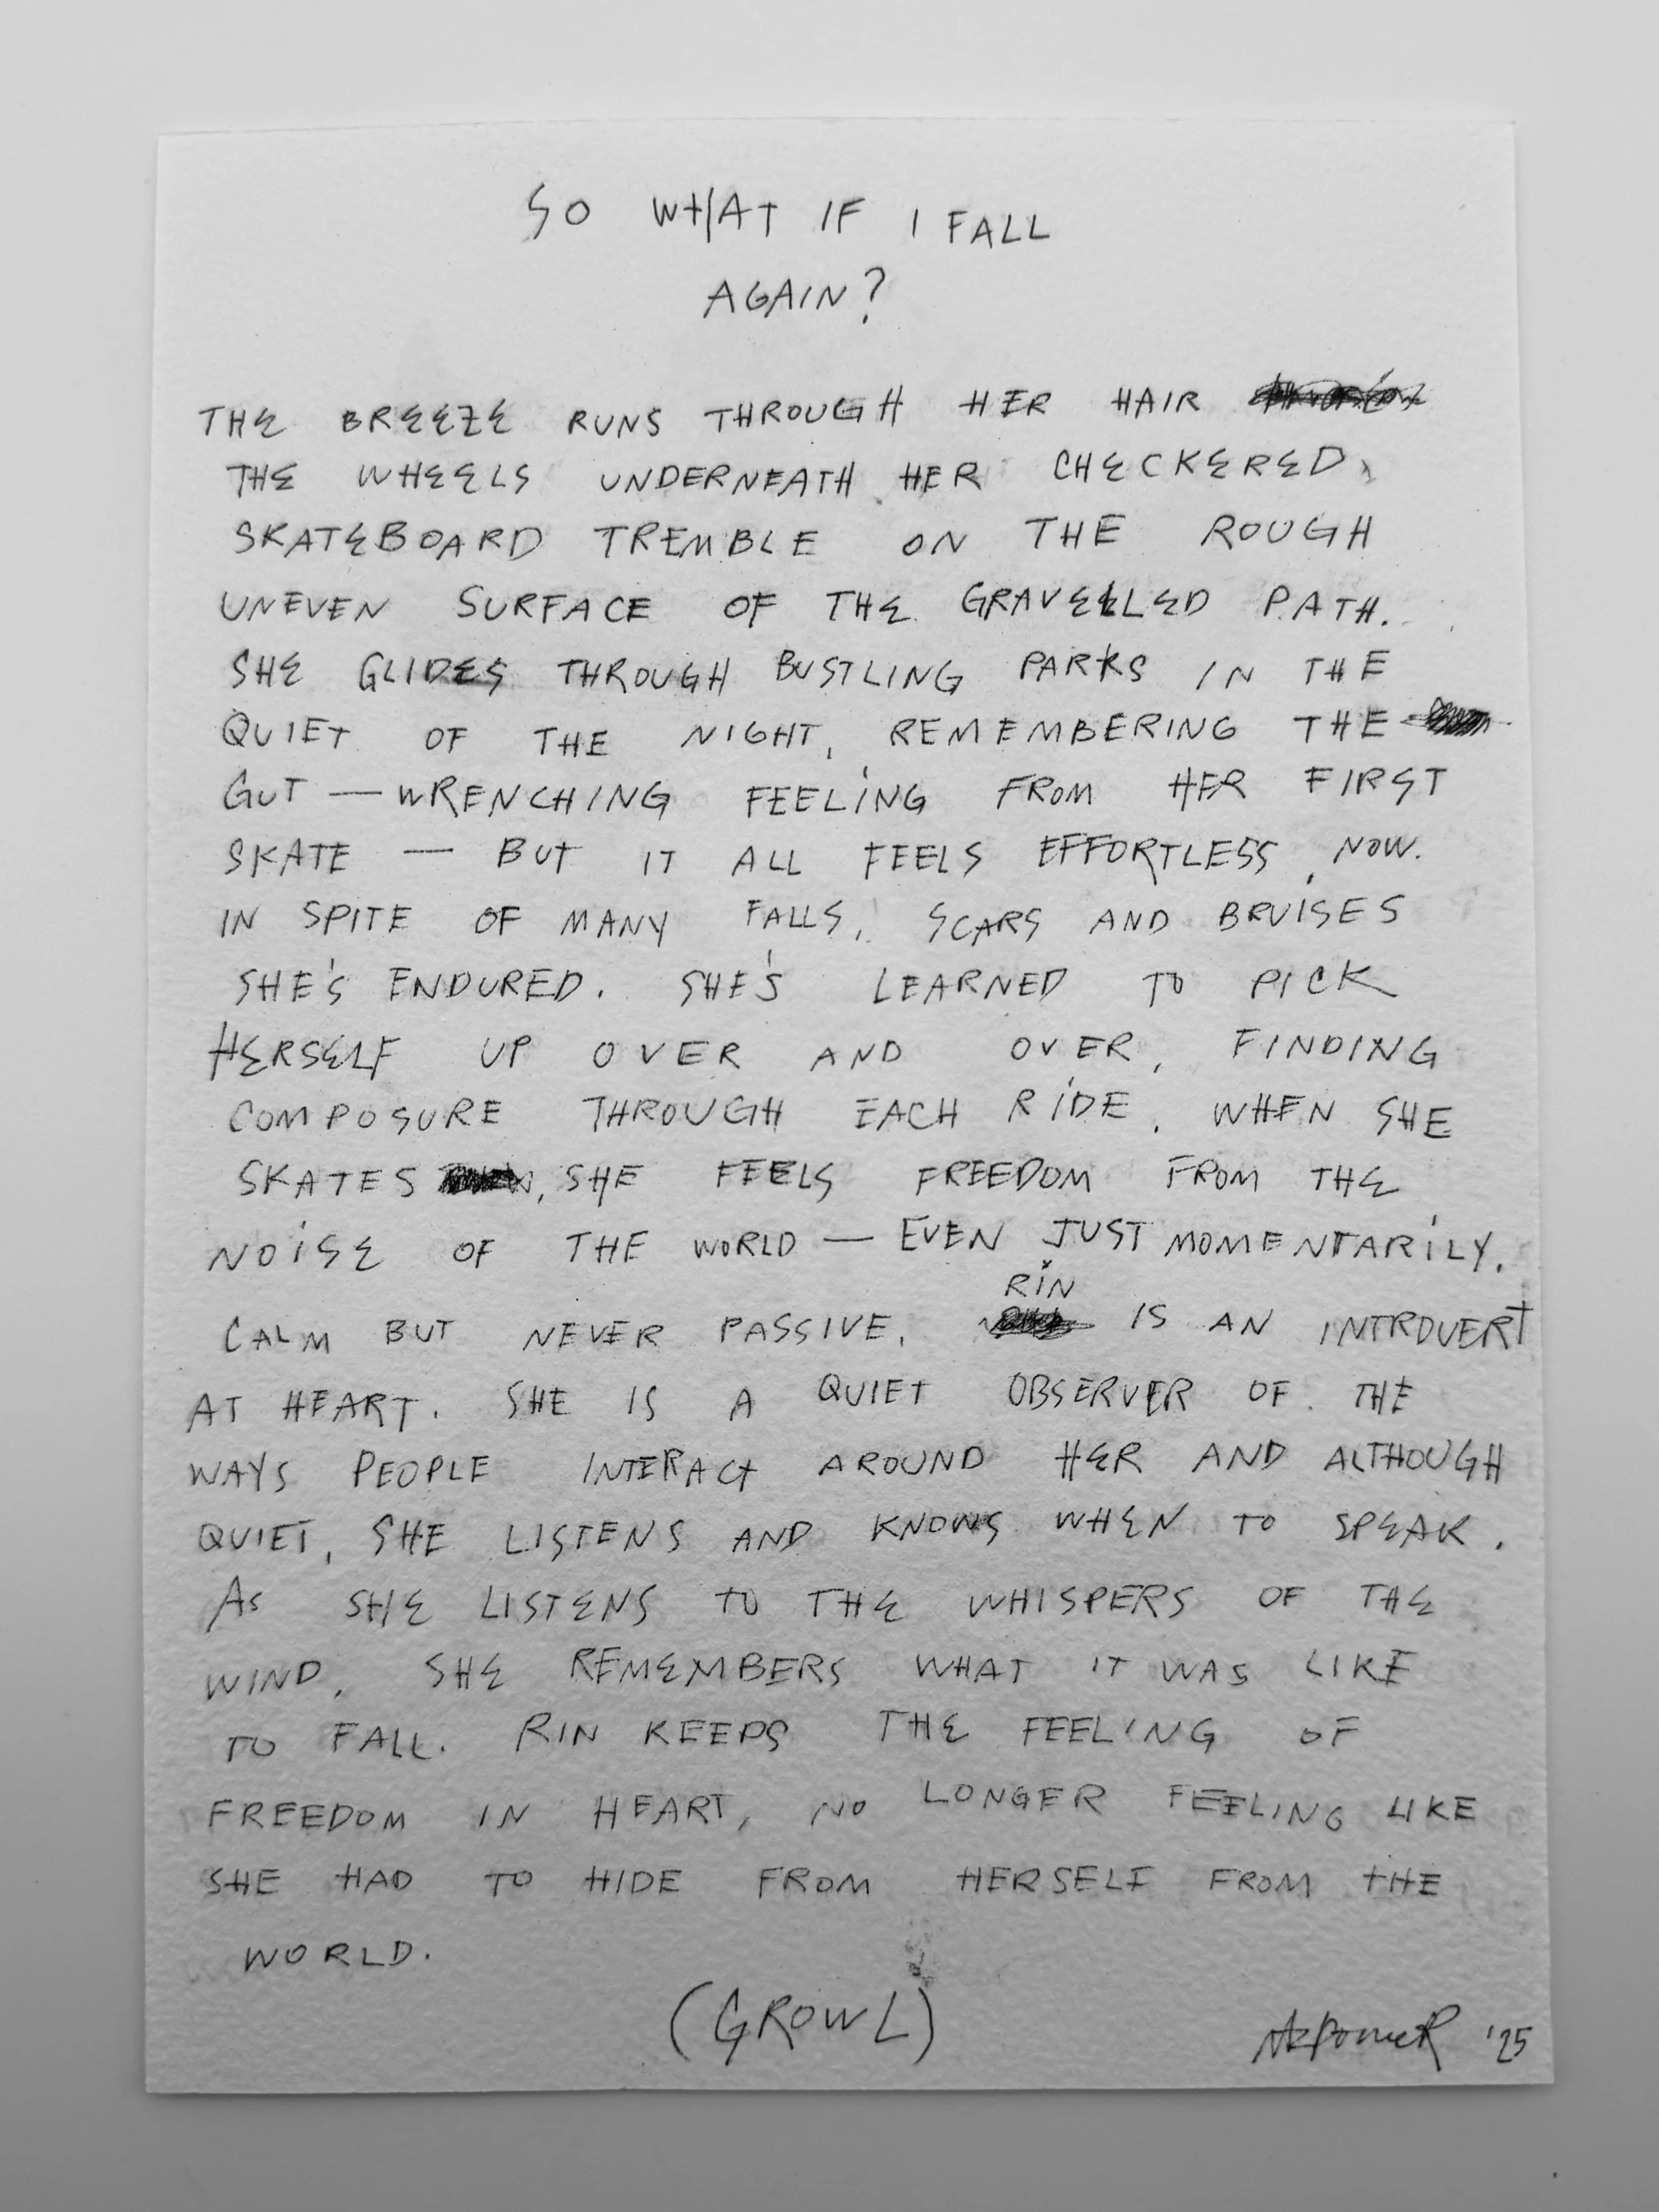 SO WHAT IF I FALL
AGAIN?
THE BREEZE RUNS THROUGH HER HAIR
THE WHEELS UNDERNEATH HER CHECKERED
SKATEBOARD TREMBLE ON THE ROUGH
UNEVEN SURFACE OF THE GRAVELLED PATH.
SHE GLIDES THROUGH BUSTLING PARKS IN THE
QUIET OF THE NIGHT, REMEMBERING THE
GUT — WRENCHING FEELING FROM HER FIRST
SKATE — BUT IT ALL FEELS EFFORTLESS NOW.
IN SPITE OF MANY FALLS, SCARS AND BRUISES
SHE'S ENDURED. SHE'S LEARNED TO PICK
HERSELF UP OVER AND OVER, FINDING
COMPOSURE THROUGH EACH RIDE. WHEN SHE
SKATES, SHE FEELS FREEDOM FROM THE
NOISE OF THE WORLD — EVEN JUST MOMENTARILY.
RIN
CALM BUT NEVER PASSIVE, IS AN INTROVERT
AT HEART. SHE IS A QUIET OBSERVER OF THE
WAYS PEOPLE INTERACT AROUND HER AND ALTHOUGH
QUIET, SHE LISTENS AND KNOWS WHEN TO SPEAK.
AS SHE LISTENS TO THE WHISPERS OF THE
WIND, SHE REMEMBERS WHAT IT WAS LIKE
TO FALL. RIN KEEPS THE FEELING OF
FREEDOM IN HEART, NO LONGER FEELING LIKE
SHE HAD TO HIDE FROM HERSELF FROM THE
WORLD.
(GROWL)
'25